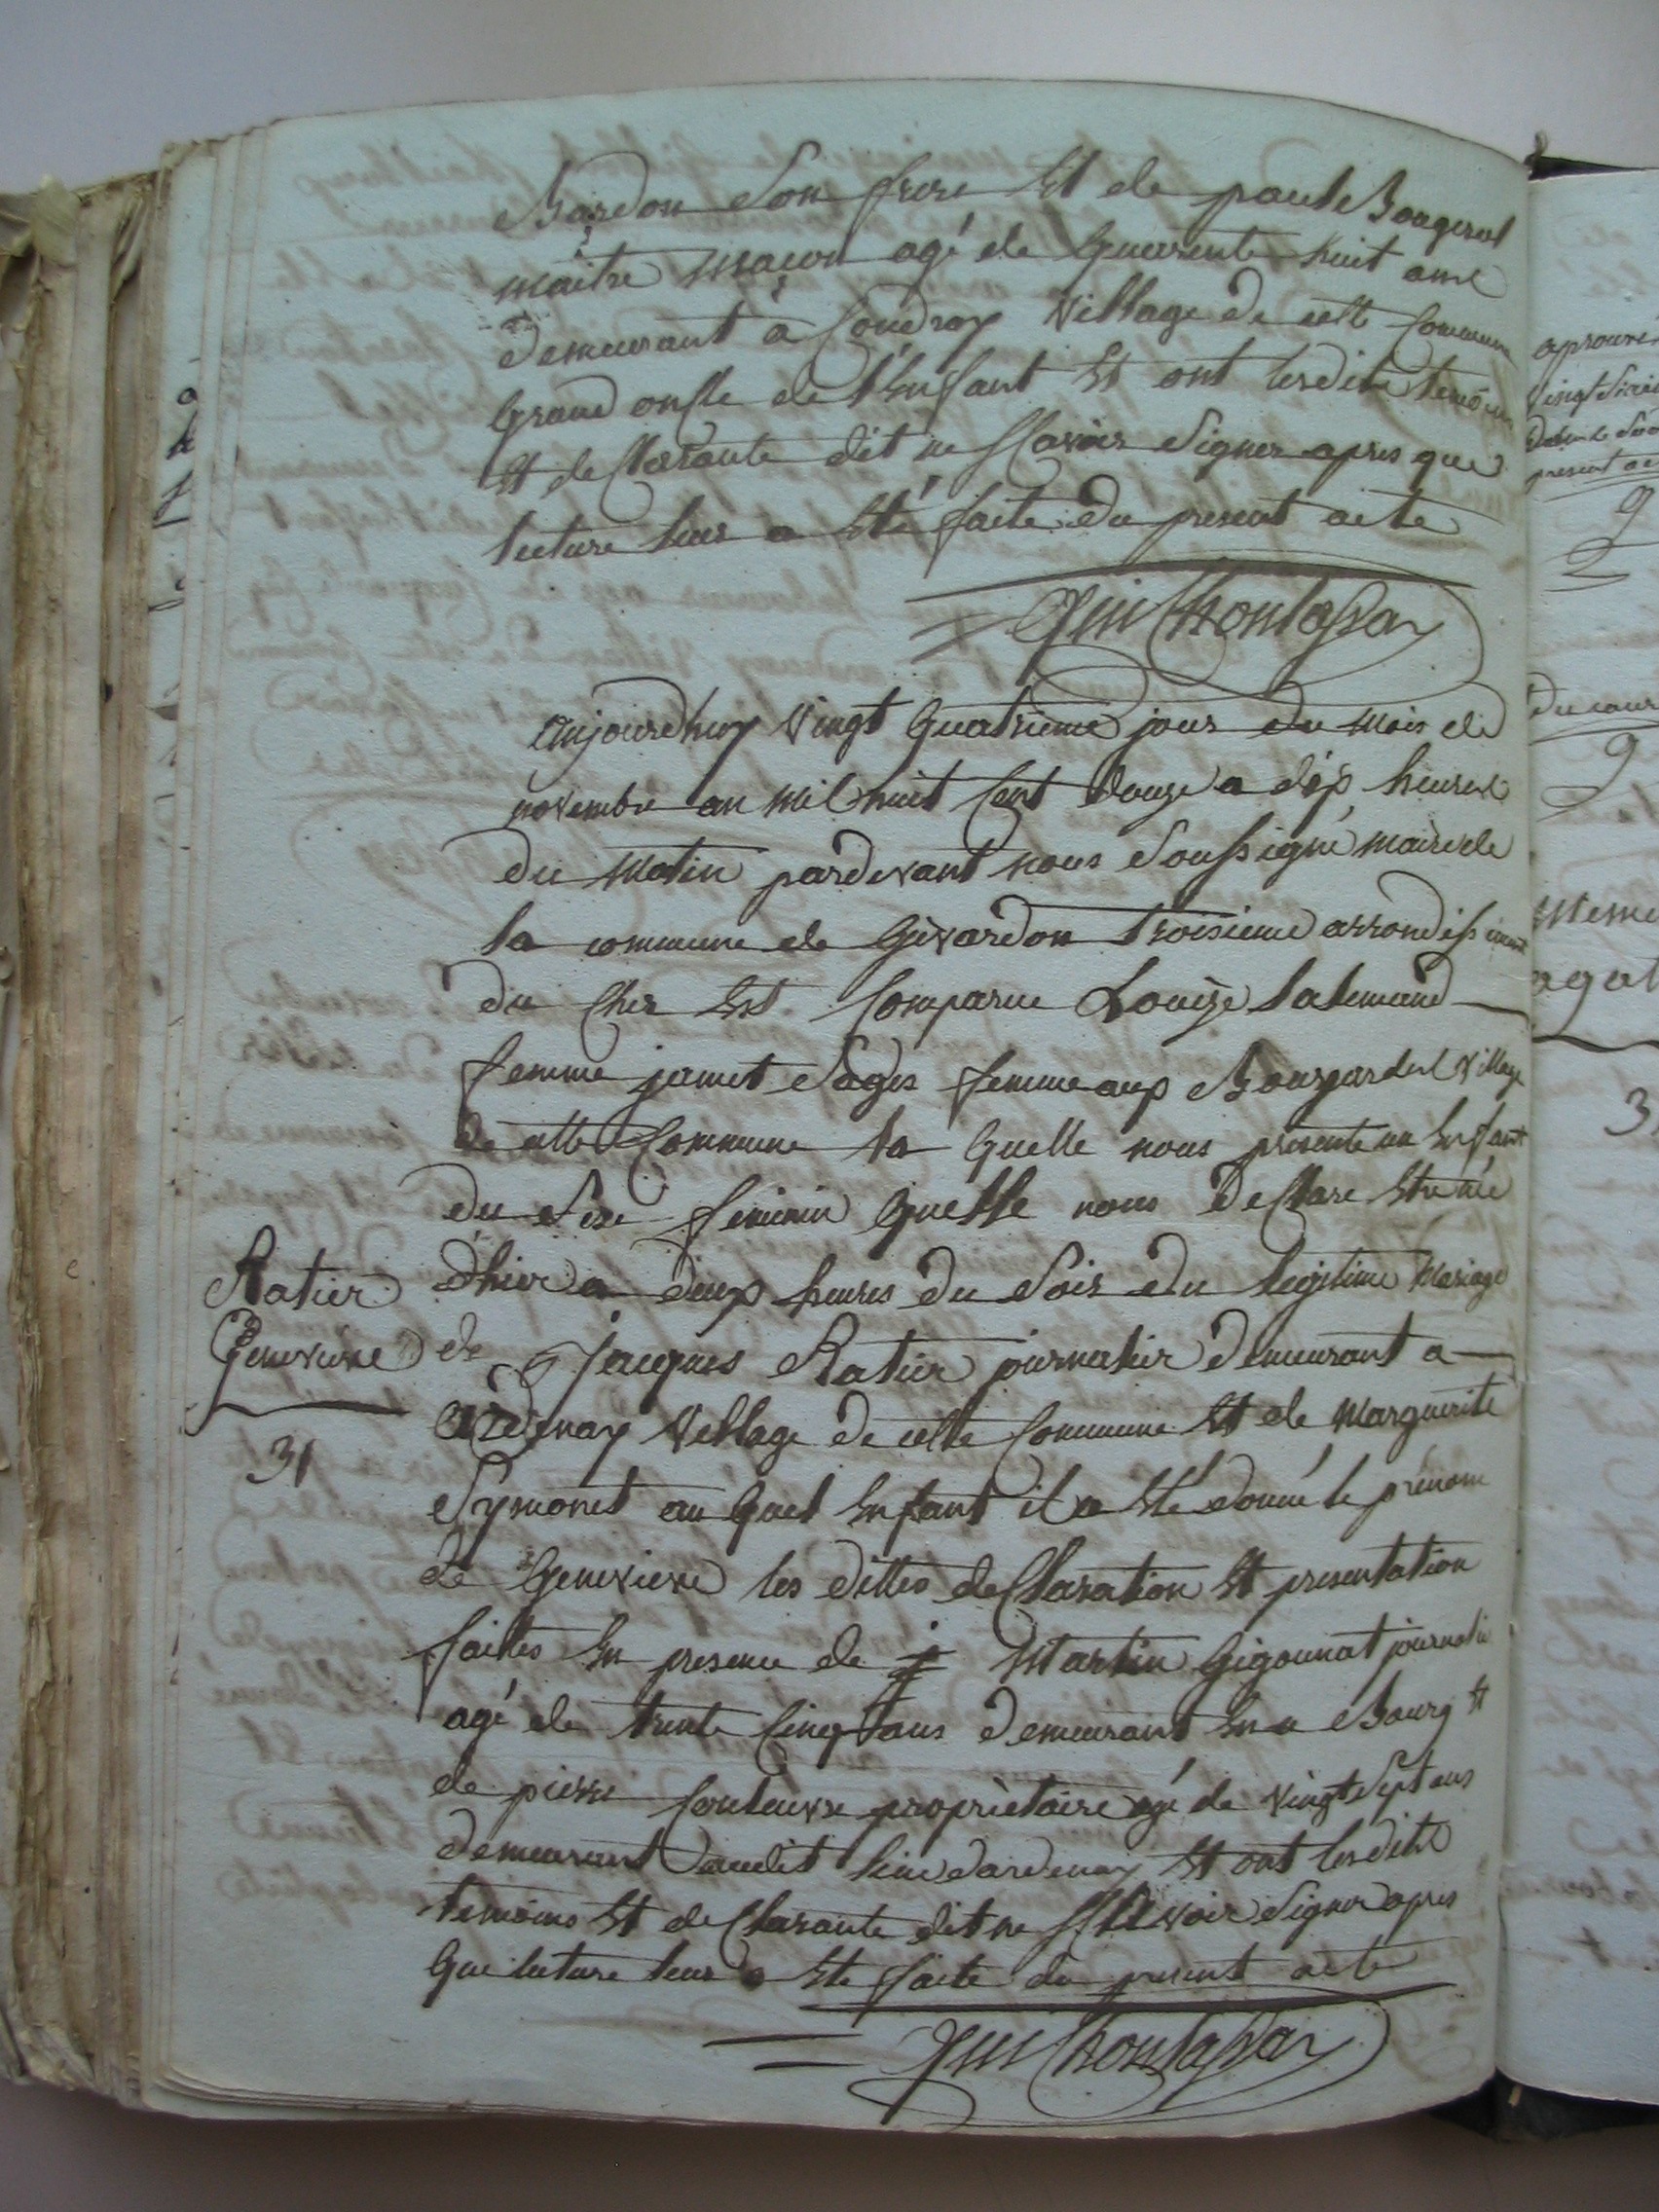 Bardon son frere Et de paul Bougerol
maitre maçon agé de Quarente huit ans
demeurant a Coudray village de cette Commune
Grand oncle de l'Enfant Et ont lesdits temoins
Et declarante dit ne scavoir signer apres que
lecture leur a Eté faite du present acte
aujourdhuy vingt Quatrieme jour du mois de
novembre an mil huit Cent douze a dix heures
du matin pardevant nous soussigné maire de
la commune de Givardon troisieme arrondissement
du Cher Est Comparue Louise lalemand
femme jamet sages femme aux Bourgardes village
de cette Commune la Quelle nous presente un Enfant
du sexe feminin Quelle nous declare Etre né
d'hier a deux heures du soir du legitime mariage
Ratier
Genevieve
31
de jacques Ratier journalier demeurant a
ardenay village de cette Commune Et de marguerite
Symonet au Quel Enfant il a Eté donné le prénom
de Genevieve les dittes declaration Et presentation
faites En presence de j Martin Gigounat journalie
agé de trente Cinq ans demeurant En ce Bourg Et
de pierre Couteuvre propriètaire agé de vingt sept ans
demeurant audit lieu dardenay Et ont lesdits
temoins Et declarante dit ne scavoir signer apres
Que lecture leur a Eté faite du present acte
aprouvé
vingt
present ac
du cour
meme
agal
3